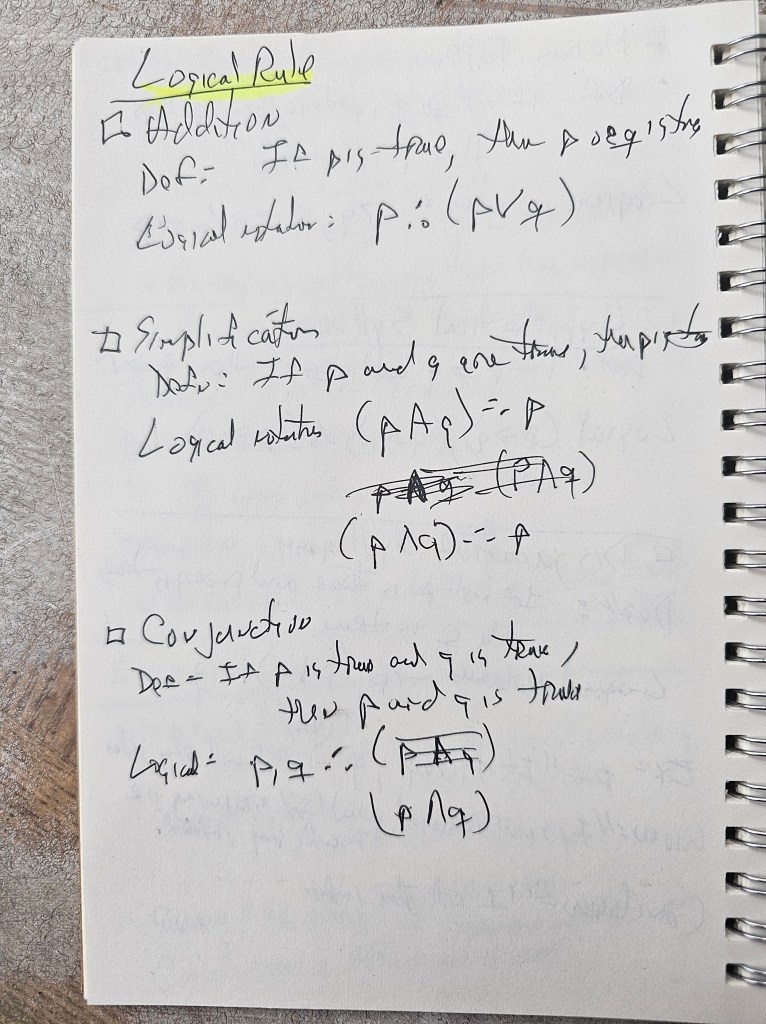 Logical Rule
□ Addition
Def: If p is true, then p or q is true
Logical notation: p ∴ (p ∨ q)
□ Simplification
Defn: If p and q are true, then p is true
Logical notation (p ∧ q) ∴ p
(p ∧ q)
(p ∧ q) ∴ p
□ Conjunction
Def = If p is true and q is true,
then p and q is true
Logical = p, q ∴ (p ∧ q)
(p ∧ q)